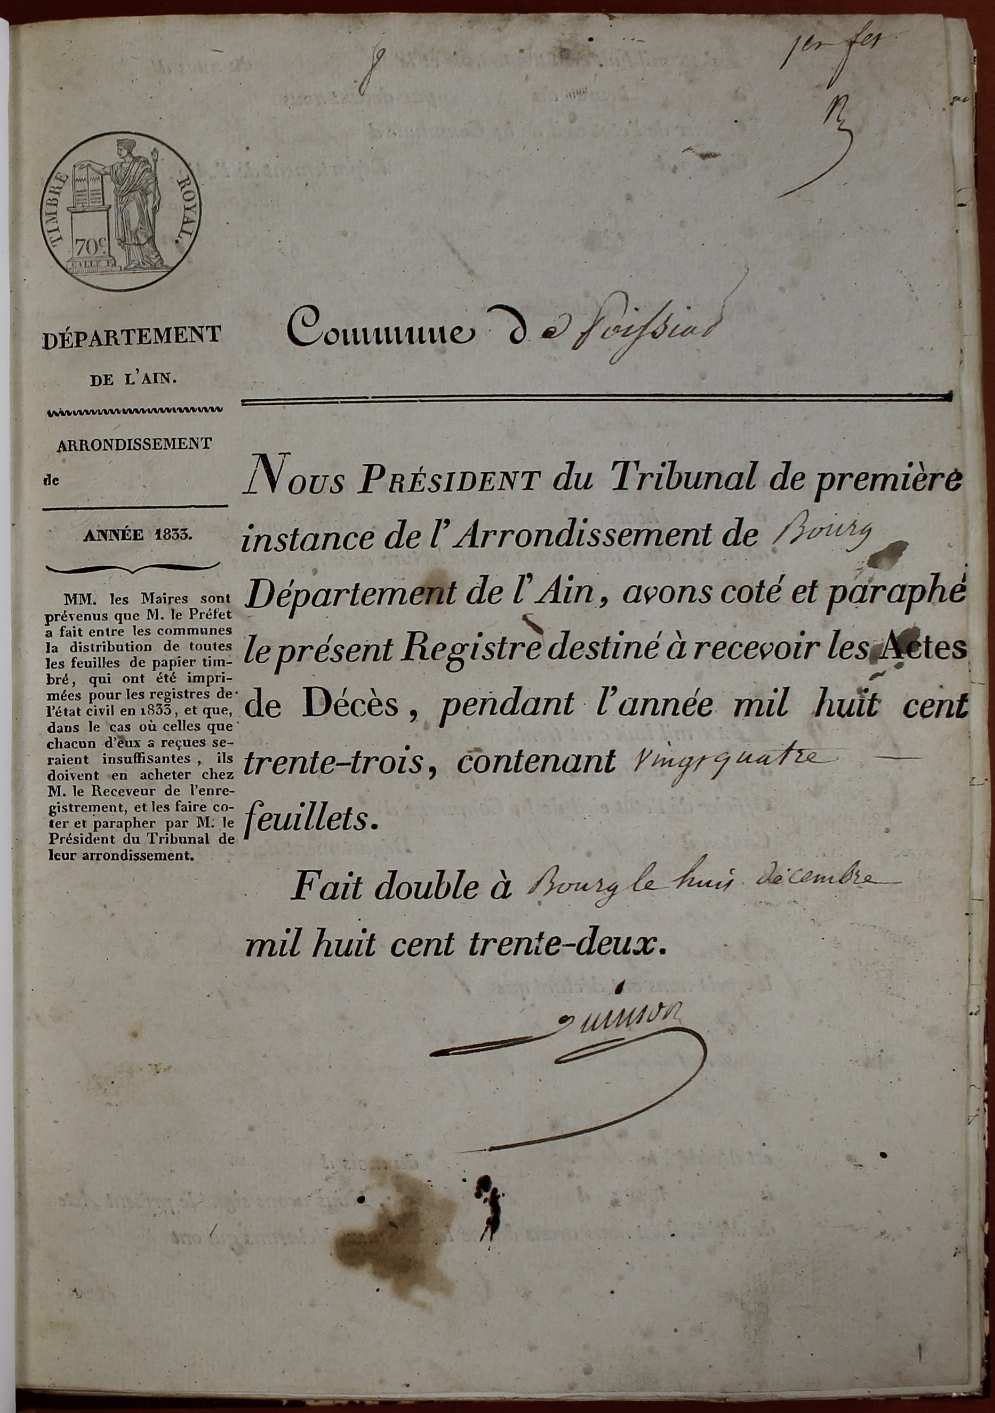 1er fet
TIMBRE ROYAL.
70c
DÉPARTEMENT
DE L'AIN.
ARRONDISSEMENT
de
ANNÉE 1833.
MM. les Maires sont
prévenus que M. le Préfet
a fait entre les communes
la distribution de toutes
les feuilles de papier tim-
bré, qui ont été impri-
mées pour les registres de
l'état civil en 1833, et que,
dans le cas où celles que
chacun d'eux a reçues se-
raient insuffisantes, ils
doivent en acheter chez
M. le Receveur de l'enre-
gistrement, et les faire co-
ter et parapher par M. le
Président du Tribunal de
leur arrondissement.
Commune de Foissiat
NOUS PRÉSIDENT du Tribunal de première
instance de l'Arrondissement de Bourg
Département de l'Ain, avons coté et paraphé
le présent Registre destiné à recevoir les Actes
de Décès, pendant l'année mil huit cent
trente-trois, contenant vingt quatre —
feuillets.
Fait double à Bourg le huit décembre
mil huit cent trente-deux.